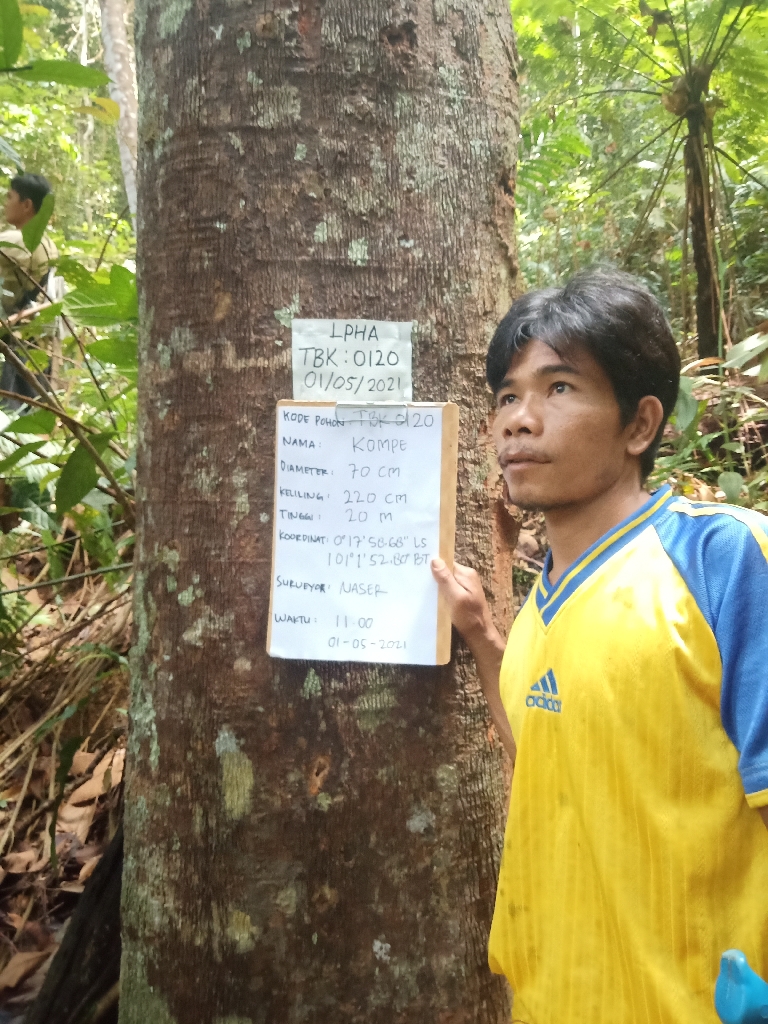 LPHA
TBK: 0120
01/05/2021
KODE POHON TBK 0120
NAMA: KOMPE
DIAMETER: 70 CM
KELILING: 220 CM
TINGGI: 20 M
KOORDINAT: 0°17'58.68" LS
101°1'52.80" BT
SURVEYOR: NASER
WAKTU: 11:00
01-05-2021
adidas